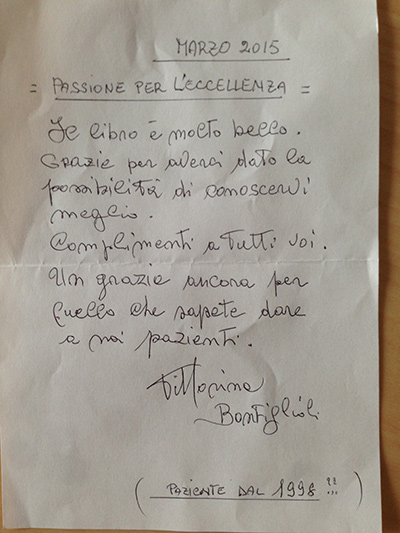 MARZO 2015
= PASSIONE PER L'ECCELLENZA =
Il libro è molto bello.
Grazie per averci dato la
possibilità di conoscervi
meglio.
Complimenti a tutti voi.
Un grazie ancora per
quello che sapete dare
a noi pazienti.
Vittorina
Bonfiglioli
( PAZIENTE DAL 1998 !!...)